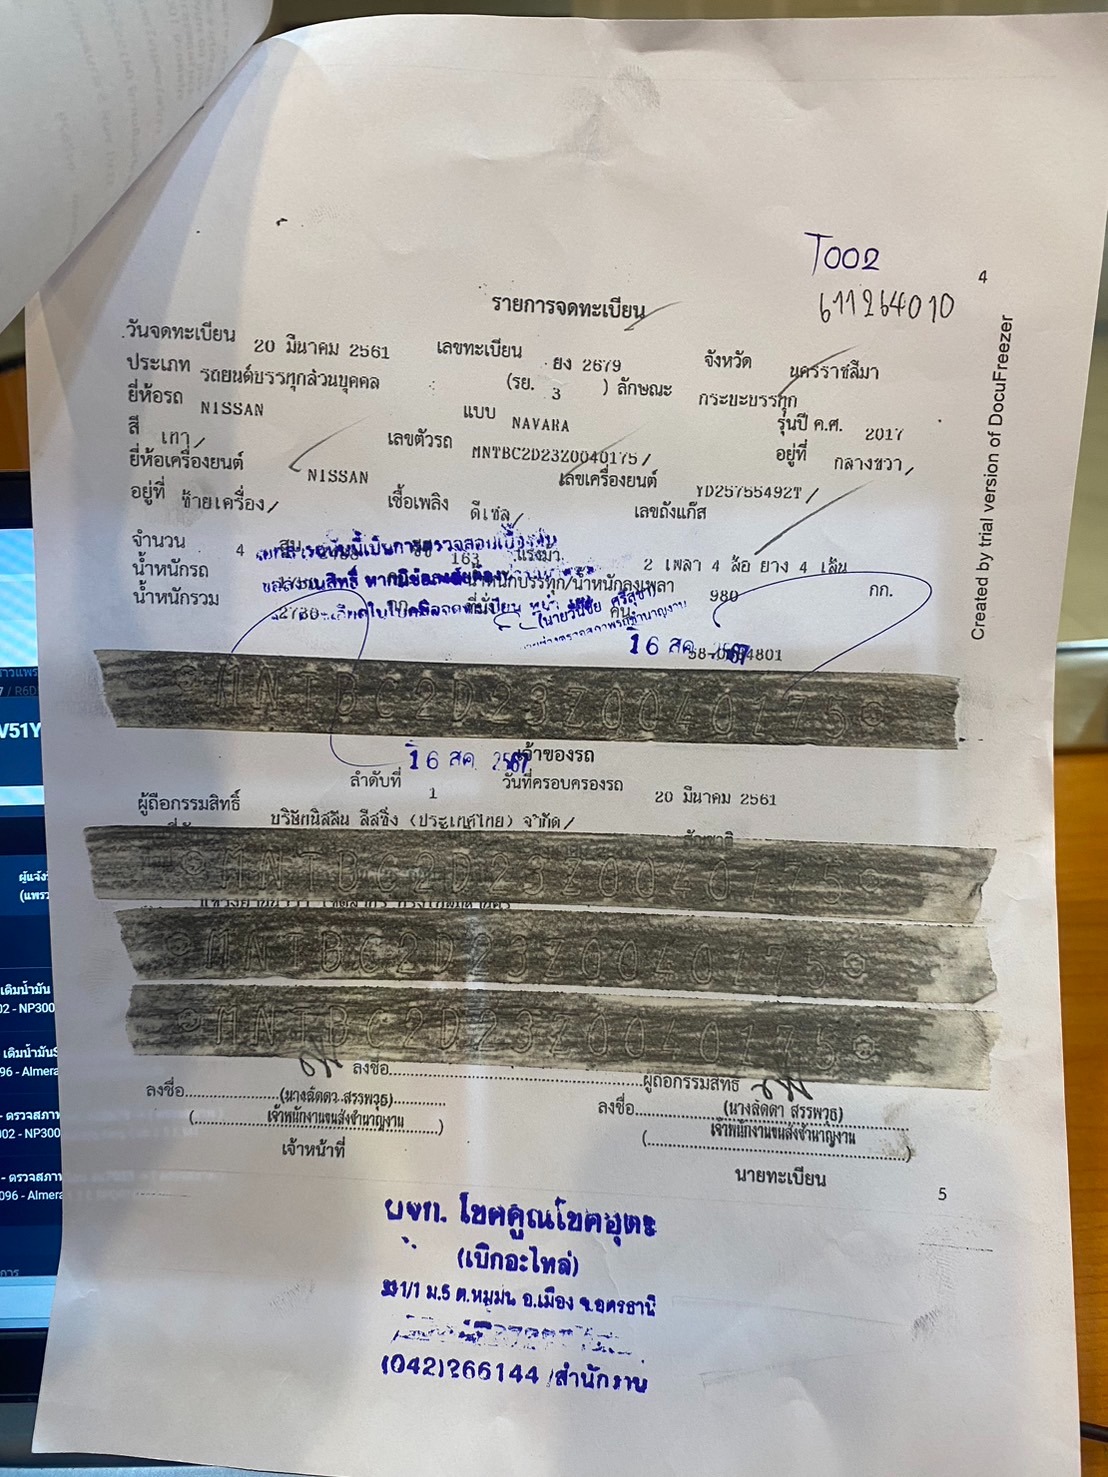 T002
4
611264010
รายการจดทะเบียน
วันจดทะเบียน 20 มีนาคม 2561 เลขทะเบียน ยง 2679 จังหวัด นครราชสีมา
ประเภท รถยนต์บรรทุกส่วนบุคคล (รย. 3 ) ลักษณะ กระบะบรรทุก
ยี่ห้อรถ NISSAN แบบ NAVARA รุ่นปี ค.ศ. 2017
สี เทา เลขตัวรถ MNTBC2D23Z0040175 อยู่ที่ กลางขวา
ยี่ห้อเครื่องยนต์ NISSAN เลขเครื่องยนต์ YD25755492T
อยู่ที่ ซ้ายเครื่อง เชื้อเพลิง ดีเซล เลขถังแก๊ส
จำนวน 4 สูบ 163 แรงม้า 2 เพลา 4 ล้อ ยาง 4 เส้น
น้ำหนักรถ น้ำหนักบรรทุก/น้ำหนักลงเพลา 980 กก.
น้ำหนักรวม คน
(นายวันชัย ศรีสุชา)
16 สค.
MNTBC2D23Z0040175
16 สค. เจ้าของรถ
ลำดับที่ 1 วันที่ครอบครองรถ 20 มีนาคม 2561
ผู้ถือกรรมสิทธิ์ บริษัทนิสสัน ลีสซิ่ง (ประเทศไทย) จำกัด
สัญชาติ
MNTBC2D23Z0040175
MNTBC2D23Z0040175
MNTBC2D23Z0040175
ลงชื่อ ผู้ถือกรรมสิทธิ์
ลงชื่อ (นางลัดดา สรรพวุธ) ลงชื่อ (นางลัดดา สรรพวุธ)
(เจ้าพนักงานขนส่งชำนาญงาน) (เจ้าพนักงานขนส่งชำนาญงาน)
เจ้าหน้าที่ นายทะเบียน
5
ผจก. โชคคูณโชคอุดร
(เบิกอะไหล่)
1/1 ม.5 ต.หมูม่น อ.เมือง จ.อุดรธานี
(042)266144 /สำนักงาน
Created by trial version of DocuFreezer
V51Y